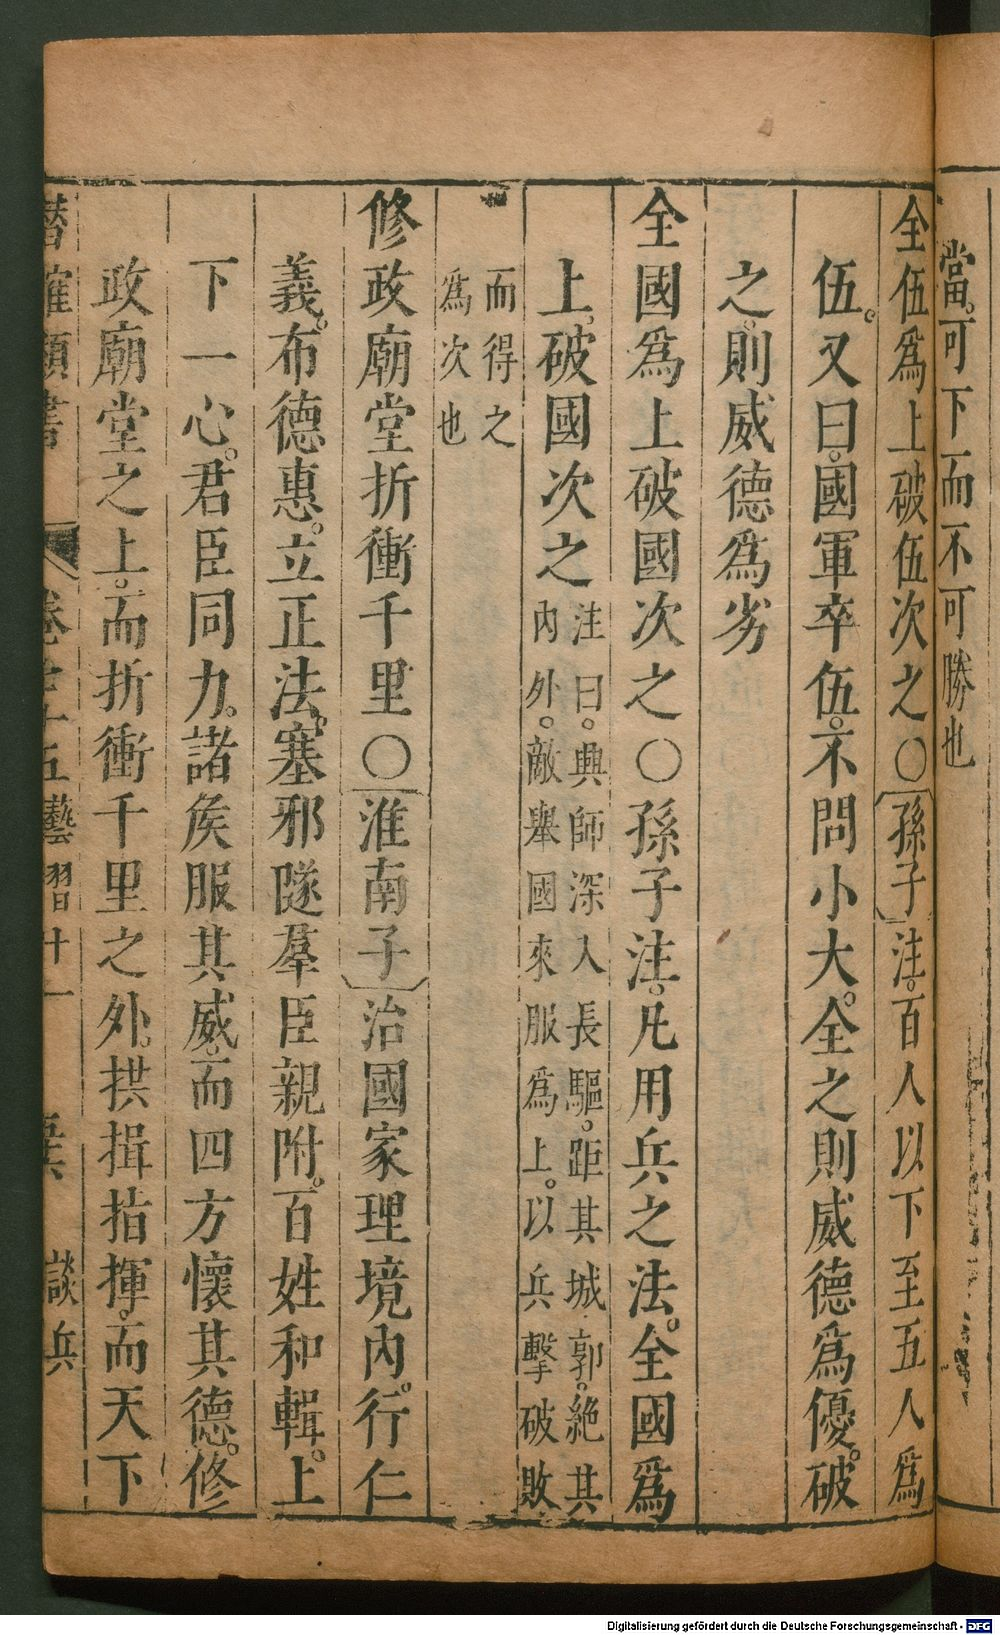 當。可下而不可勝也
全伍爲上破伍次之〇孫子注。百人以下至五人爲
伍。又曰。國軍卒伍。不問小大。全之則威德爲優。破
之。則威德爲劣
全國爲上破國次之〇孫子注。凡用兵之法。全國爲
上。破國次之
注曰。興師深入長驅。距其城郭。絶其
內外。敵舉國來服爲上。以兵擊破敗
而得之
爲次也
修政廟堂折衝千里〇淮南子治國家理境內。行仁
義。布德惠。立正法。塞邪隧羣臣親附。百姓和輯。上
下一心。君臣同力。諸矦服其威。而四方懷其德。修
政廟堂之上。而折衝千里之外。拱揖指揮。而天下
潛確類書 卷 十五 藝習十一 談兵
Digitalisierung gefördert durch die Deutsche Forschungsgemeinschaft - DFG